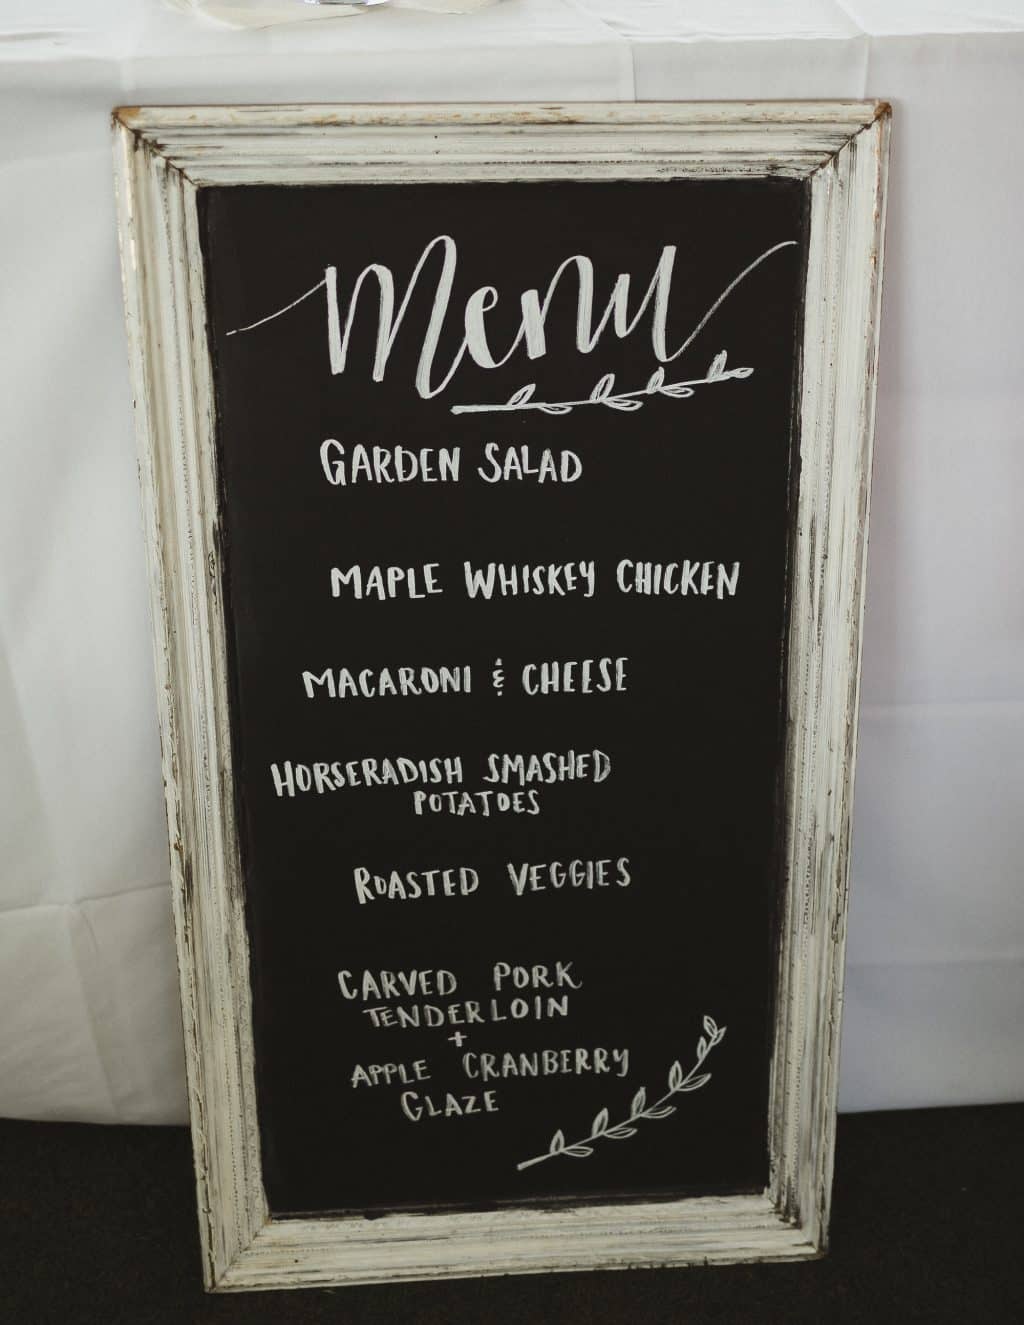 Menu
GARDEN SALAD
MAPLE WHISKEY CHICKEN
MACARONI & CHEESE
HORSERADISH SMASHED
POTATOES
ROASTED VEGGIES
CARVED PORK
TENDERLOIN
+
APPLE CRANBERRY
GLAZE